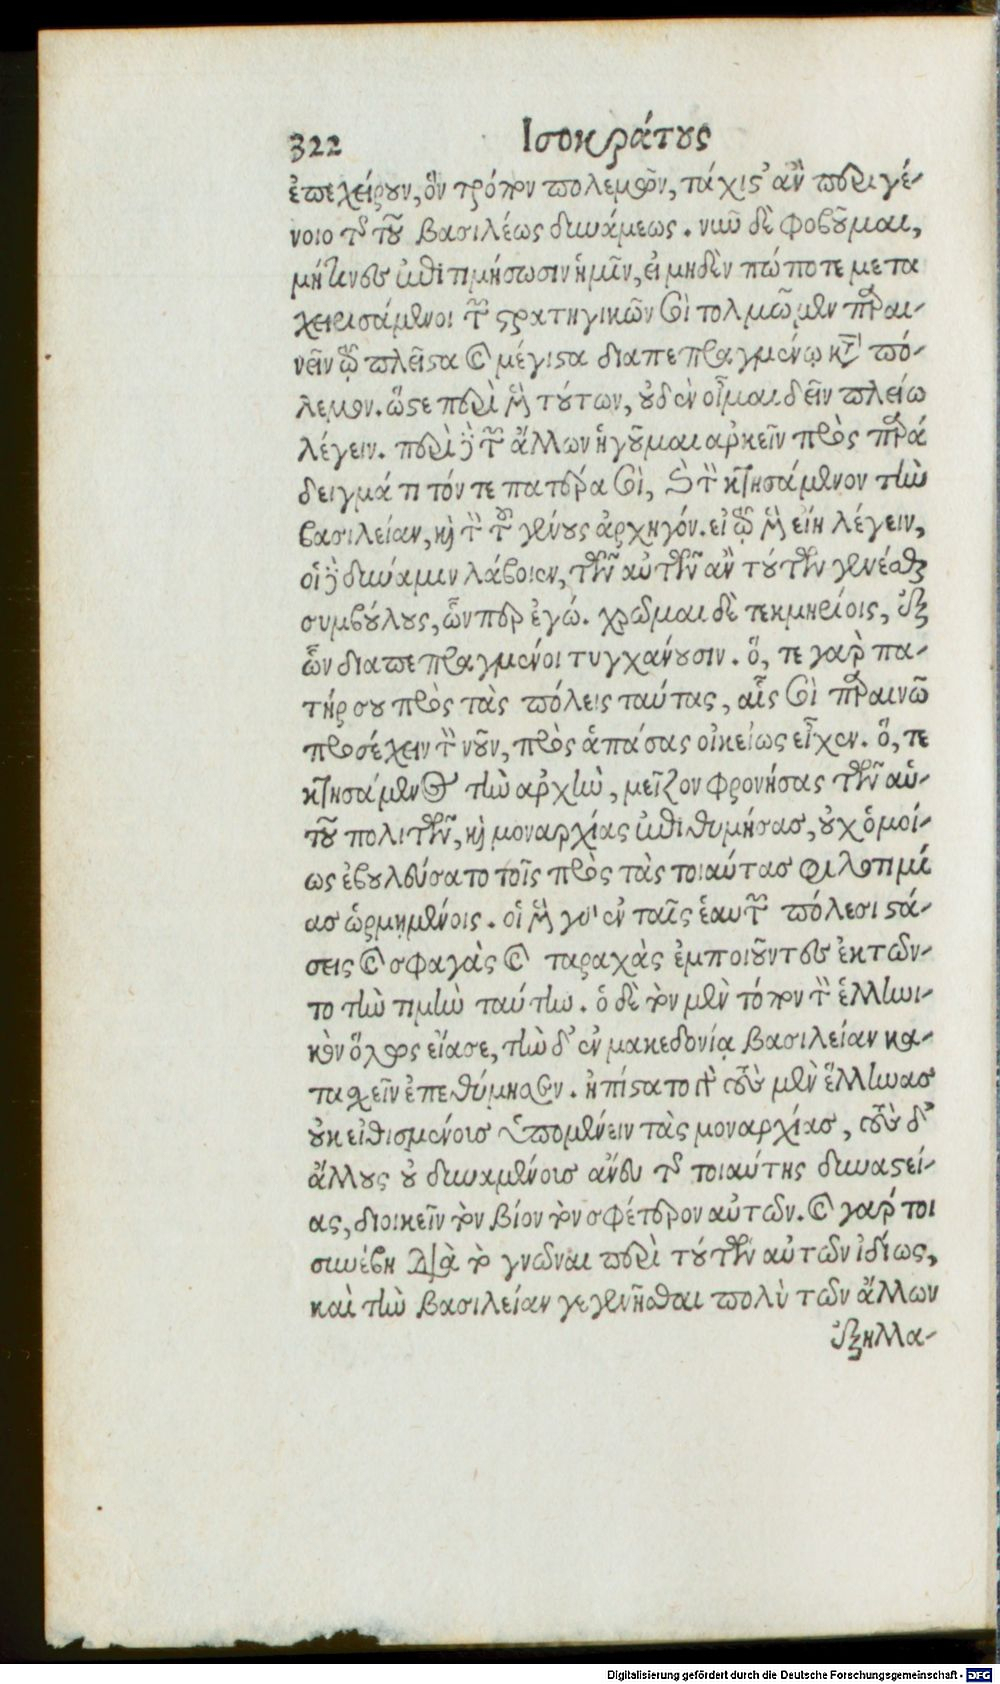 322 Ισοκράτους
ἐπεχείρουν, ὃν τρόπον πολεμῶν, τάχιστ' ἂν περιγέ-
νοιο τῆς τοῦ βασιλέως δυνάμεως. νῦν δὲ φοβοῦμαι,
μή τινες ἐπιτιμήσωσιν ἡμῖν, εἰ μηδὲν πώποτε μετα
χειρισάμενοι τῶν στρατηγικῶν σοὶ τολμῶμεν παραι-
νεῖν τῷ πλεῖστα καὶ μέγιστα διαπεπραγμένῳ κατὰ πό-
λεμον. ὥστε περὶ μὲν τούτων, οὐδὲν οἶμαι δεῖν πλείω
λέγειν. περὶ δὲ τῶν ἄλλων ἡγοῦμαι ἀρκεῖν πρὸς παρά
δειγμά τι τόν τε πατέρα σοὶ, καὶ τὸν κτησάμενον τὴν
βασιλείαν, καὶ τὸν τοῦ γένους ἀρχηγόν. εἰ τῷ μὲν εἴη λέγειν,
οἱ δὲ δύναμιν λάβοιεν, τῶν αὐτῶν ἂν τούτων γενέσθαι
συμβούλους, ὧνπερ ἐγώ. χρῶμαι δὲ τεκμηρίοις, ἐξ
ὧν διαπεπραγμένοι τυγχάνουσιν. ὅ, τε γὰρ πα-
τήρ σου πρὸς τὰς πόλεις ταύτας, αἷς σοὶ παραινῶ
προσέχειν τὸν νοῦν, πρὸς ἁπάσας οἰκείως εἶχεν. ὅ, τε
κτησάμενος τὴν ἀρχὴν, μεῖζον φρονήσας τῶν αὑ-
τοῦ πολιτῶν, καὶ μοναρχίας ἐπιθυμήσας, οὐχ ὁμοί-
ως ἐβουλεύσατο τοῖς πρὸς τὰς τοιαύτας φιλοτιμί
ας ὡρμημένοις. οἱ μὲν γὰρ ἐν ταῖς ἑαυτῶν πόλεσι στά-
σεις καὶ σφαγὰς καὶ ταραχὰς ἐμποιοῦντες ἐκτῶν-
το τὴν τιμὴν ταύτην. ὁ δὲ τὸν μὲν τόπον τὸν ἑλληνι-
κὸν ὅλως εἴασε, τὴν δ' ἐν μακεδονίᾳ βασιλείαν κα-
τασχεῖν ἐπεθύμησεν. ἠπίστατο γὰρ τοὺς μὲν ἕλληνας
οὐκ εἰθισμένοις ὑπομένειν τὰς μοναρχίας, τοὺς δ'
ἄλλους οὐ δυναμένοις ἄνευ τῆς τοιαύτης δυναστεί-
ας, διοικεῖν τὸν βίον τὸν σφέτερον αὐτῶν. καὶ γάρ τοι
συνέβη διὰ τὸ γνῶναι περὶ τούτων αὐτῶν ἰδίως,
καὶ τὴν βασιλείαν γεγενῆσθαι πολὺ τῶν ἄλλων
ἐξηλλα-
Digitalisierung gefördert durch die Deutsche Forschungsgemeinschaft - DFG